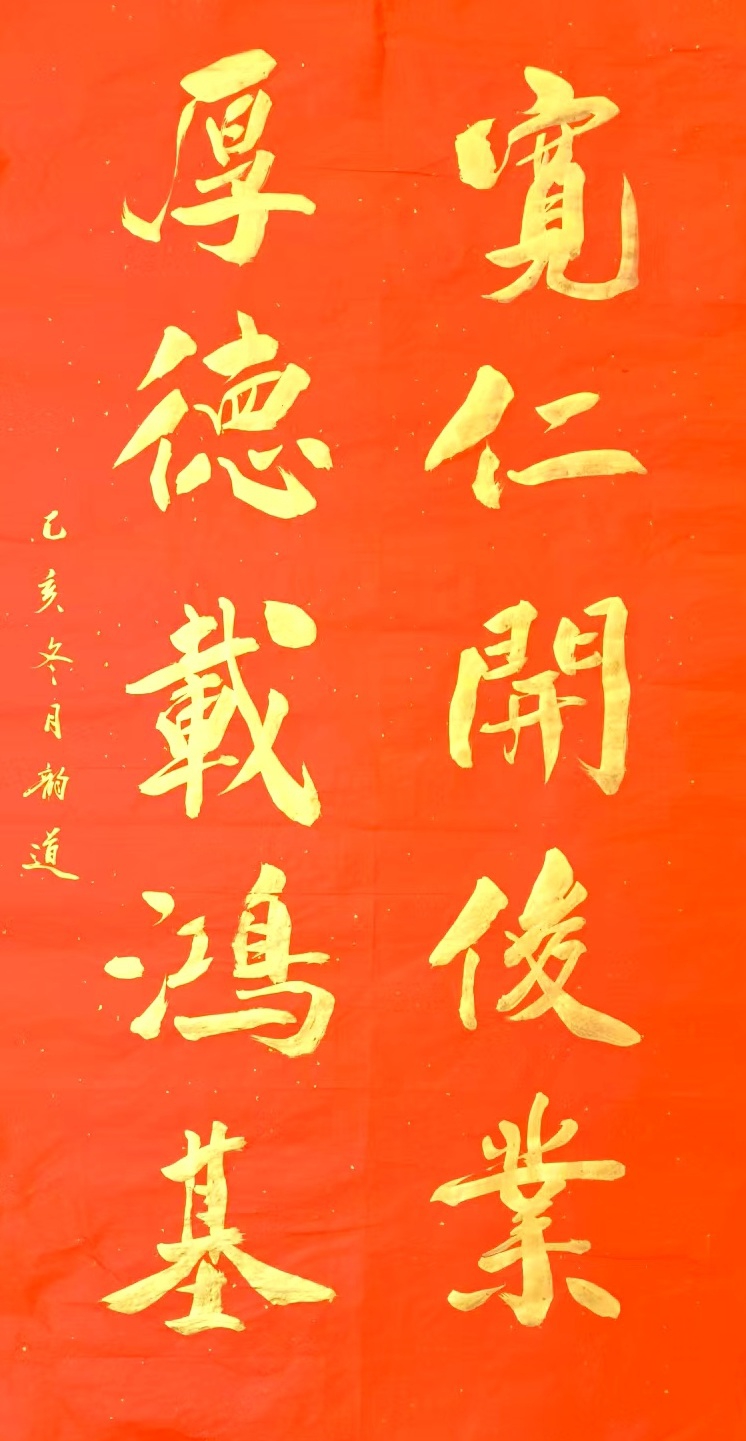 寬仁開俊業
厚德載鴻基
己亥冬月韵道